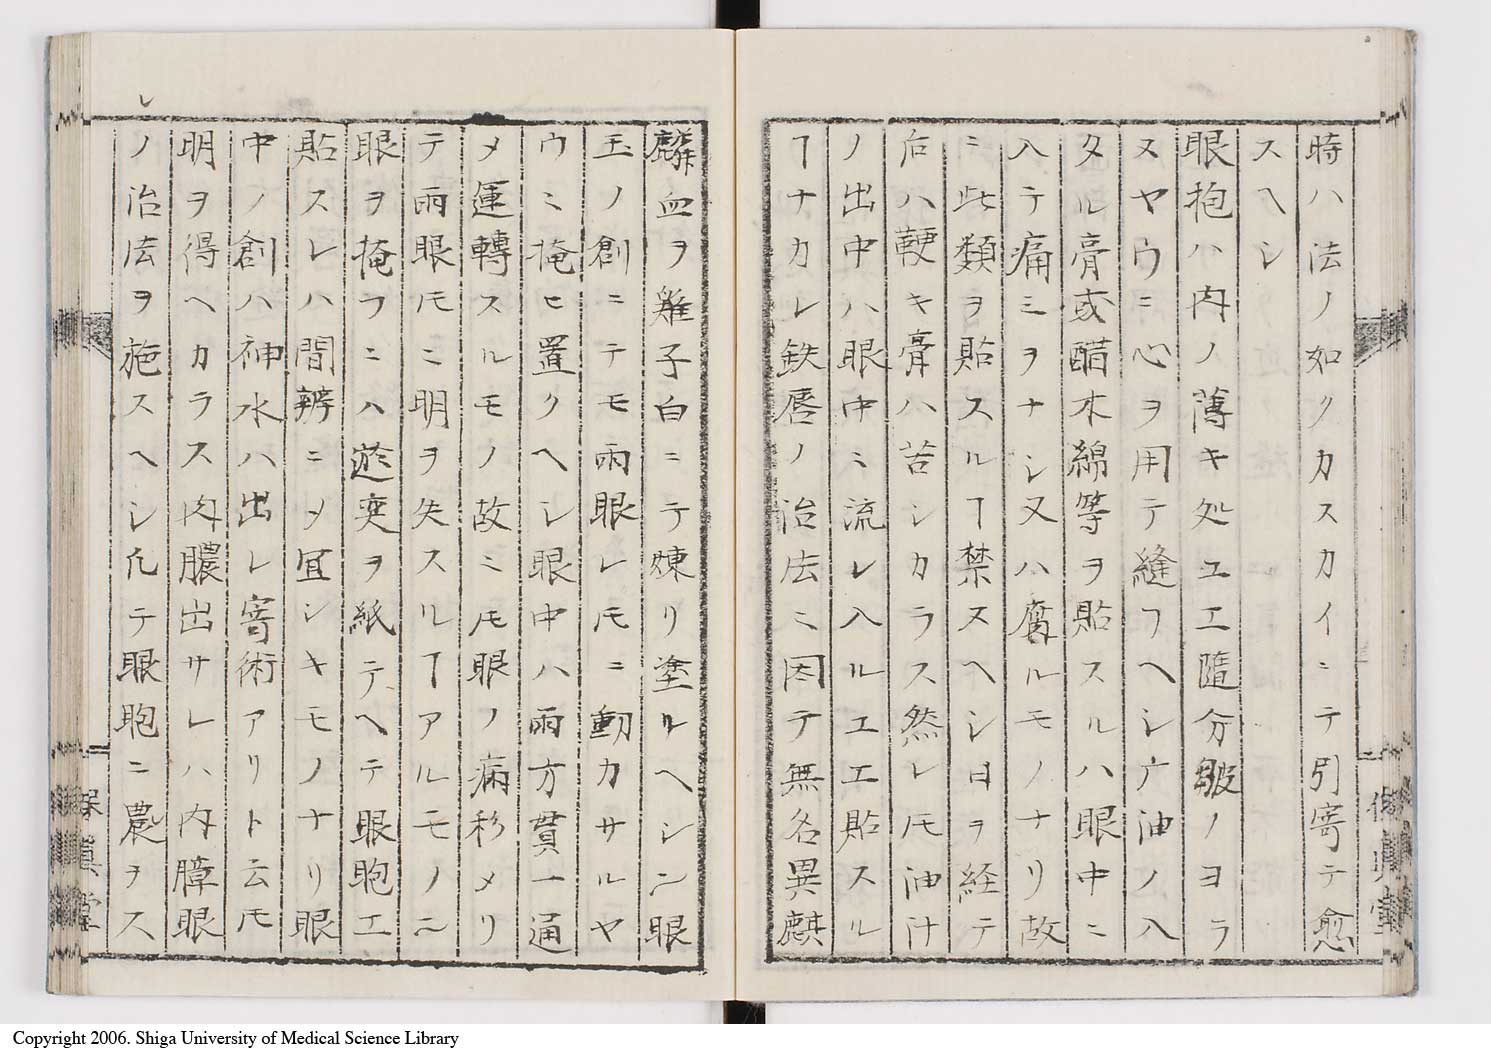 時ハ法ノ如クカスカイニテ引寄テ愈
スヘシ
眼抱ハ内ノ薄キ処ユエ隨分皺ノヨラ
ヌヤウニ心ヲ用テ縫フヘシ広油ノ入
タル膏或醋木綿等ヲ貼スルハ眼中ニ
入テ痛ミヲナシ又ハ腐ルモノナリ故
ニ此類ヲ貼スルヿ禁スヘシ日ヲ経テ
后ハ鞕キ膏ハ苦シカラス然レ𪜈油汁
ノ出中ハ眼中ニ流レ入ルユエ貼スル
ヿナカレ鉄唇ノ治法ニ因テ無名異麒
麟血ヲ雞子白ニテ煉リ塗ルヘシ眼
玉ノ創ニテモ両眼レ𪜈ニ動カサルヤ
ウミ掩ヒ置クヘシ眼中ハ両方貫一通
メ運轉スルモノ故ミ𪜈眼ノ病移メリ
テ両眼𪜈ニ明ヲ失スルヿアルモノニ
眼ヲ掩フニハ遊奕ヲ紙テヘテ眼胞エ
貼スレハ間辨ニメ宜シキモノナリ眼
中ノ創ハ神水ハ出レ寄術アリト云𪜈
明ヲ得ヘカラス肉膿出サレハ内障眼
ノ治法ヲ施スヘシ凡テ眼胞ニ農ヲス
保真堂
Copyright 2006. Shiga University of Medical Science Library